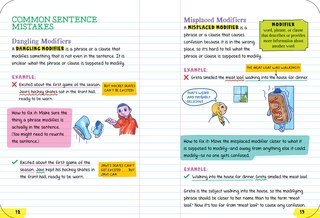 COMMON SENTENCE
MISTAKES
Dangling Modifiers
A DANGLING MODIFIER is a phrase or a clause that
modifies something that is not even in the sentence. It is
unclear what the phrase or clause is supposed to modify.
EXAMPLE:
Excited about the first game of the season,
Jane's hockey skates sat in the front hall,
ready to be worn.
BUT HOCKEY SKATES
CAN'T BE EXCITED!
How to fix it: Make sure the
thing a phrase modifies is
actually in the sentence.
(You might need to rewrite
the sentence.)
Excited about the first game of the
season, Jane kept her hockey skates in
the front hall, ready to be worn.
JANE'S SKATES CAN'T
BE EXCITED . . . BUT
JANE CAN!
18
Misplaced Modifiers
A MISPLACED MODIFIER is a
phrase or a clause that causes
confusion because it is in the wrong
place, so it's hard to tell what the
phrase or clause is supposed to modify.
MODIFIER
word, phrase, or clause
that describes or provides
more information about
another word
EXAMPLE:
THE MEAT LOAF WAS WALKING?!
Greta smelled the meat loaf walking into the house for dinner.
How to fix it: Move the misplaced modifier closer to what it
is supposed to modify—and away from anything else it could
modify—so no one gets confused.
EXAMPLE:
Walking into the house for dinner, Greta smelled the meat loaf.
Greta is the subject walking into the house, so the modifying
phrase should be closer to her name than to the term "meat
loaf." Now it's too far from "meat loaf" to cause any confusion.
19